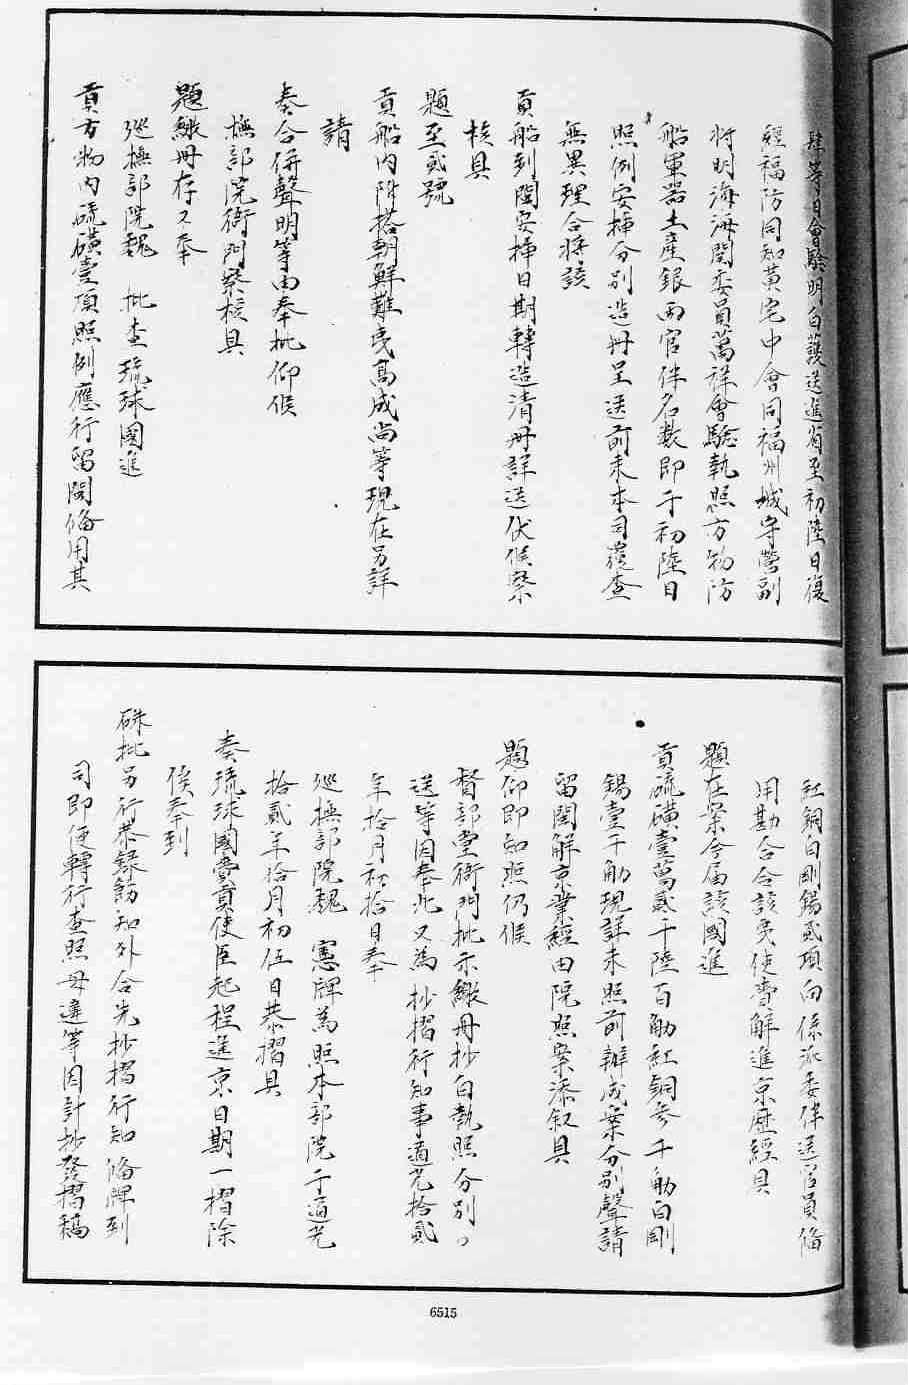 肆等日會驗明白護送進省至初陸日復
經福防同知黃宅中會同福州城守營副
將明海海關委員萬祥會驗執照方物防
船軍器土產銀兩官伴名數即于初陸日
照例安揷分別造册呈送前來本司覆查
無異理合將該
貢船到閩安揷日期轉造清册詳送伏候察
核具
題至貳號
貢船內附搭朝鮮難夷高成尚等現在另詳
請
奏合併聲明等由奉批仰候
撫部院衙門察核具
題繳册存又奉
巡撫部院魏 批查琉球國進
貢方物內硫磺壹項照例應行留閩俻用其
紅銅白剛錫貳項向係派委伴送官員俻
用勘合令該夷使賫解進京歷經具
題在案今届該國進
貢硫磺壹萬貳千陸百觔紅銅參千觔白剛
錫壹千觔現詳未照前辦成案分別聲請
留閩解京業經由院照案添叙具
題仰即知照仍候
督部堂衙門批示繳册抄白執照分別
送等因奉此又為抄摺行知事道光拾貳
年拾月初拾日奉
巡撫部院魏 憲牌為照本部院于道光
拾貳年拾月初伍日恭摺具
奏琉球國賫貢使臣起程進京日期一摺除
俟奉到
硃批另行恭録飭知外合先抄摺行知俻牌到
司即便轉行查照毋違等因計抄發摺稿
6515